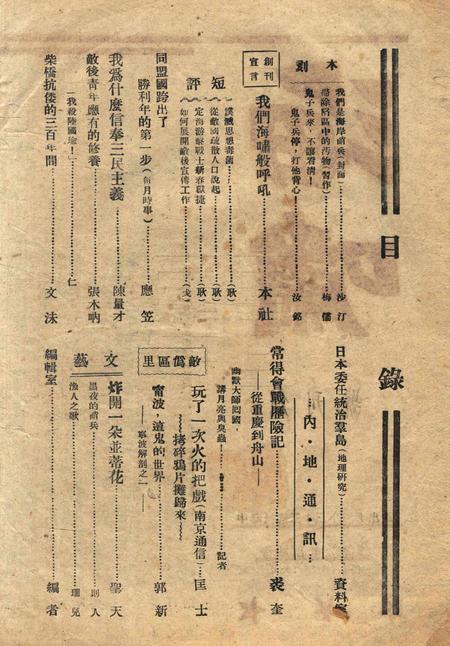 目錄
木刻
我們是海岸哨兵(封面)……沙汀
掃除廟區中的污物(習作)……梅儒
鬼子兵來，不體看清！
鬼子兵停，打他背心……汝銘
創刊宣言
我們海嘯般呼吼……本社
短評
談談思想毒菌……(耿)
從敵國疏散人口說起……(耿)
定海游擊戰士新春獻捷……(耿)
如何展開敵後宣傳工作……(戈)
同盟國跨出了
勝利年的第一步(每月時事)……應笠
我爲什麼信奉三民主義……陳量才
敵後青年應有的修養……張木吶
「我殺陸國瑜！」……仁
柴橋抗倭的三百年間……文沫
日本委任統治羣島(地理研究)……資料室
…內·地·通·訊…
常得會戰歷險記……裘奎
—從重慶到舟山—
幽默大師回國，
講月亮與臭蟲……記者
敵僞區里
玩了一次火的把戲(南京通信)…匡士
～拷碎鴉片攤歸來～
甯波，這鬼的世界……郭新
—寧波解剖之一—
文藝
炸開一朵並蒂花……聖天
黑夜的哨兵……則人
漁人之歌……珊兒
編輯室……編者